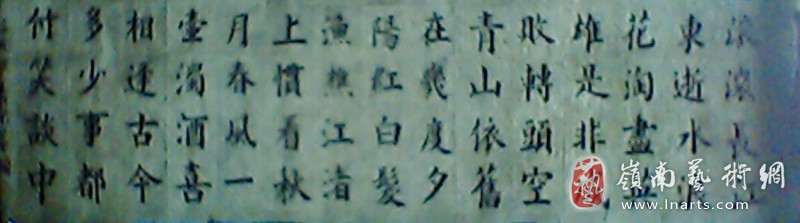 滾滾長
東逝水浪
花淘盡
雄是非
敗轉頭空
青山依舊
在幾度夕
陽紅白髮
漁樵江渚
上慣看秋
月春風一
壺濁酒喜
相逢古今
多少事都
付笑談中
藝
嶺南藝術網
www.lnarts.com